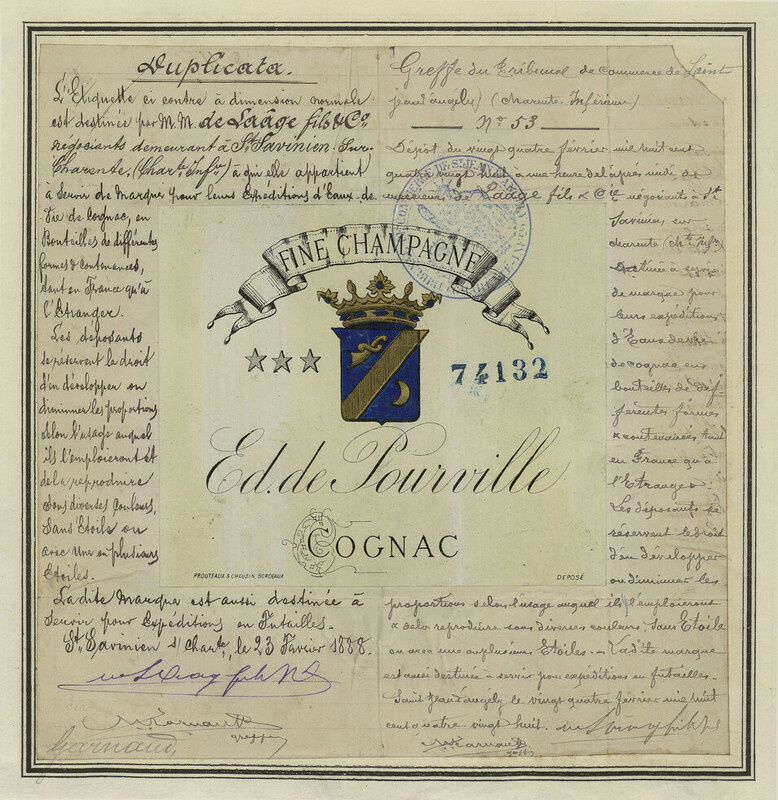 Duplicata.
L'Etiquette ci contre à dimension normale
est destinée par M.M. de Laâge fils & Co.
négociants demeurant à St Savinien-Sur-
Charente, (Charte Infre) à qui elle appartient
à Servir de Marque pour leurs Expéditions d'Eaux-de-
Vie de Cognac, en
Bouteilles de différentes
formes & contenances,
tant en France qu'à
l'Etranger.
Les déposants
se réservent le droit
d'en développer ou
diminuer les proportions
selon l'usage auquel
ils l'emploieront et
de la reproduire
sous diverses Couleurs,
Sans Etoile ou
avec Une ou plusieurs
Etoiles.
La dite Marque est aussi destinée à
Servir pour Expéditions en Futailles.
St Savinien s/ Charte, le 23 Février 1888.
Garnaud,
greffier
Greffe du Tribunal de Commerce de Saint
jean d'angély (Charente-Inférieure)
No 53
Dépôt du vingt quatre février mil huit cent
quatre vingt huit a une heure de l'après midi de
messieurs de Laage fils & Cie négociants à St
Savinien sur
charente (chte Infre)
Destinée à servir
de marque pour
leurs expéditions
d'Eaux de vie
de cognac, en
bouteilles de dif-
férentes formes
& contenances tant
en France qu'à
l'Etranger.
Les déposants se
réservent le droit
d'en développer
ou diminuer les
proportions selon l'usage auquel ils l'emploieront
& de la reproduire sous diverses couleurs, sans Etoile
ou avec une ou plusieurs Etoiles. - La dite marque
est aussi destinée à servir pour expéditions en futailles.
Saint Jean d'angély le vingt quatre février mil huit
cent quatre vingt huit.
FINE CHAMPAGNE
74132
Ed. de Pourville
COGNAC
PROUTEAUX & CHAUDIN, BORDEAUX
DÉPOSÉ